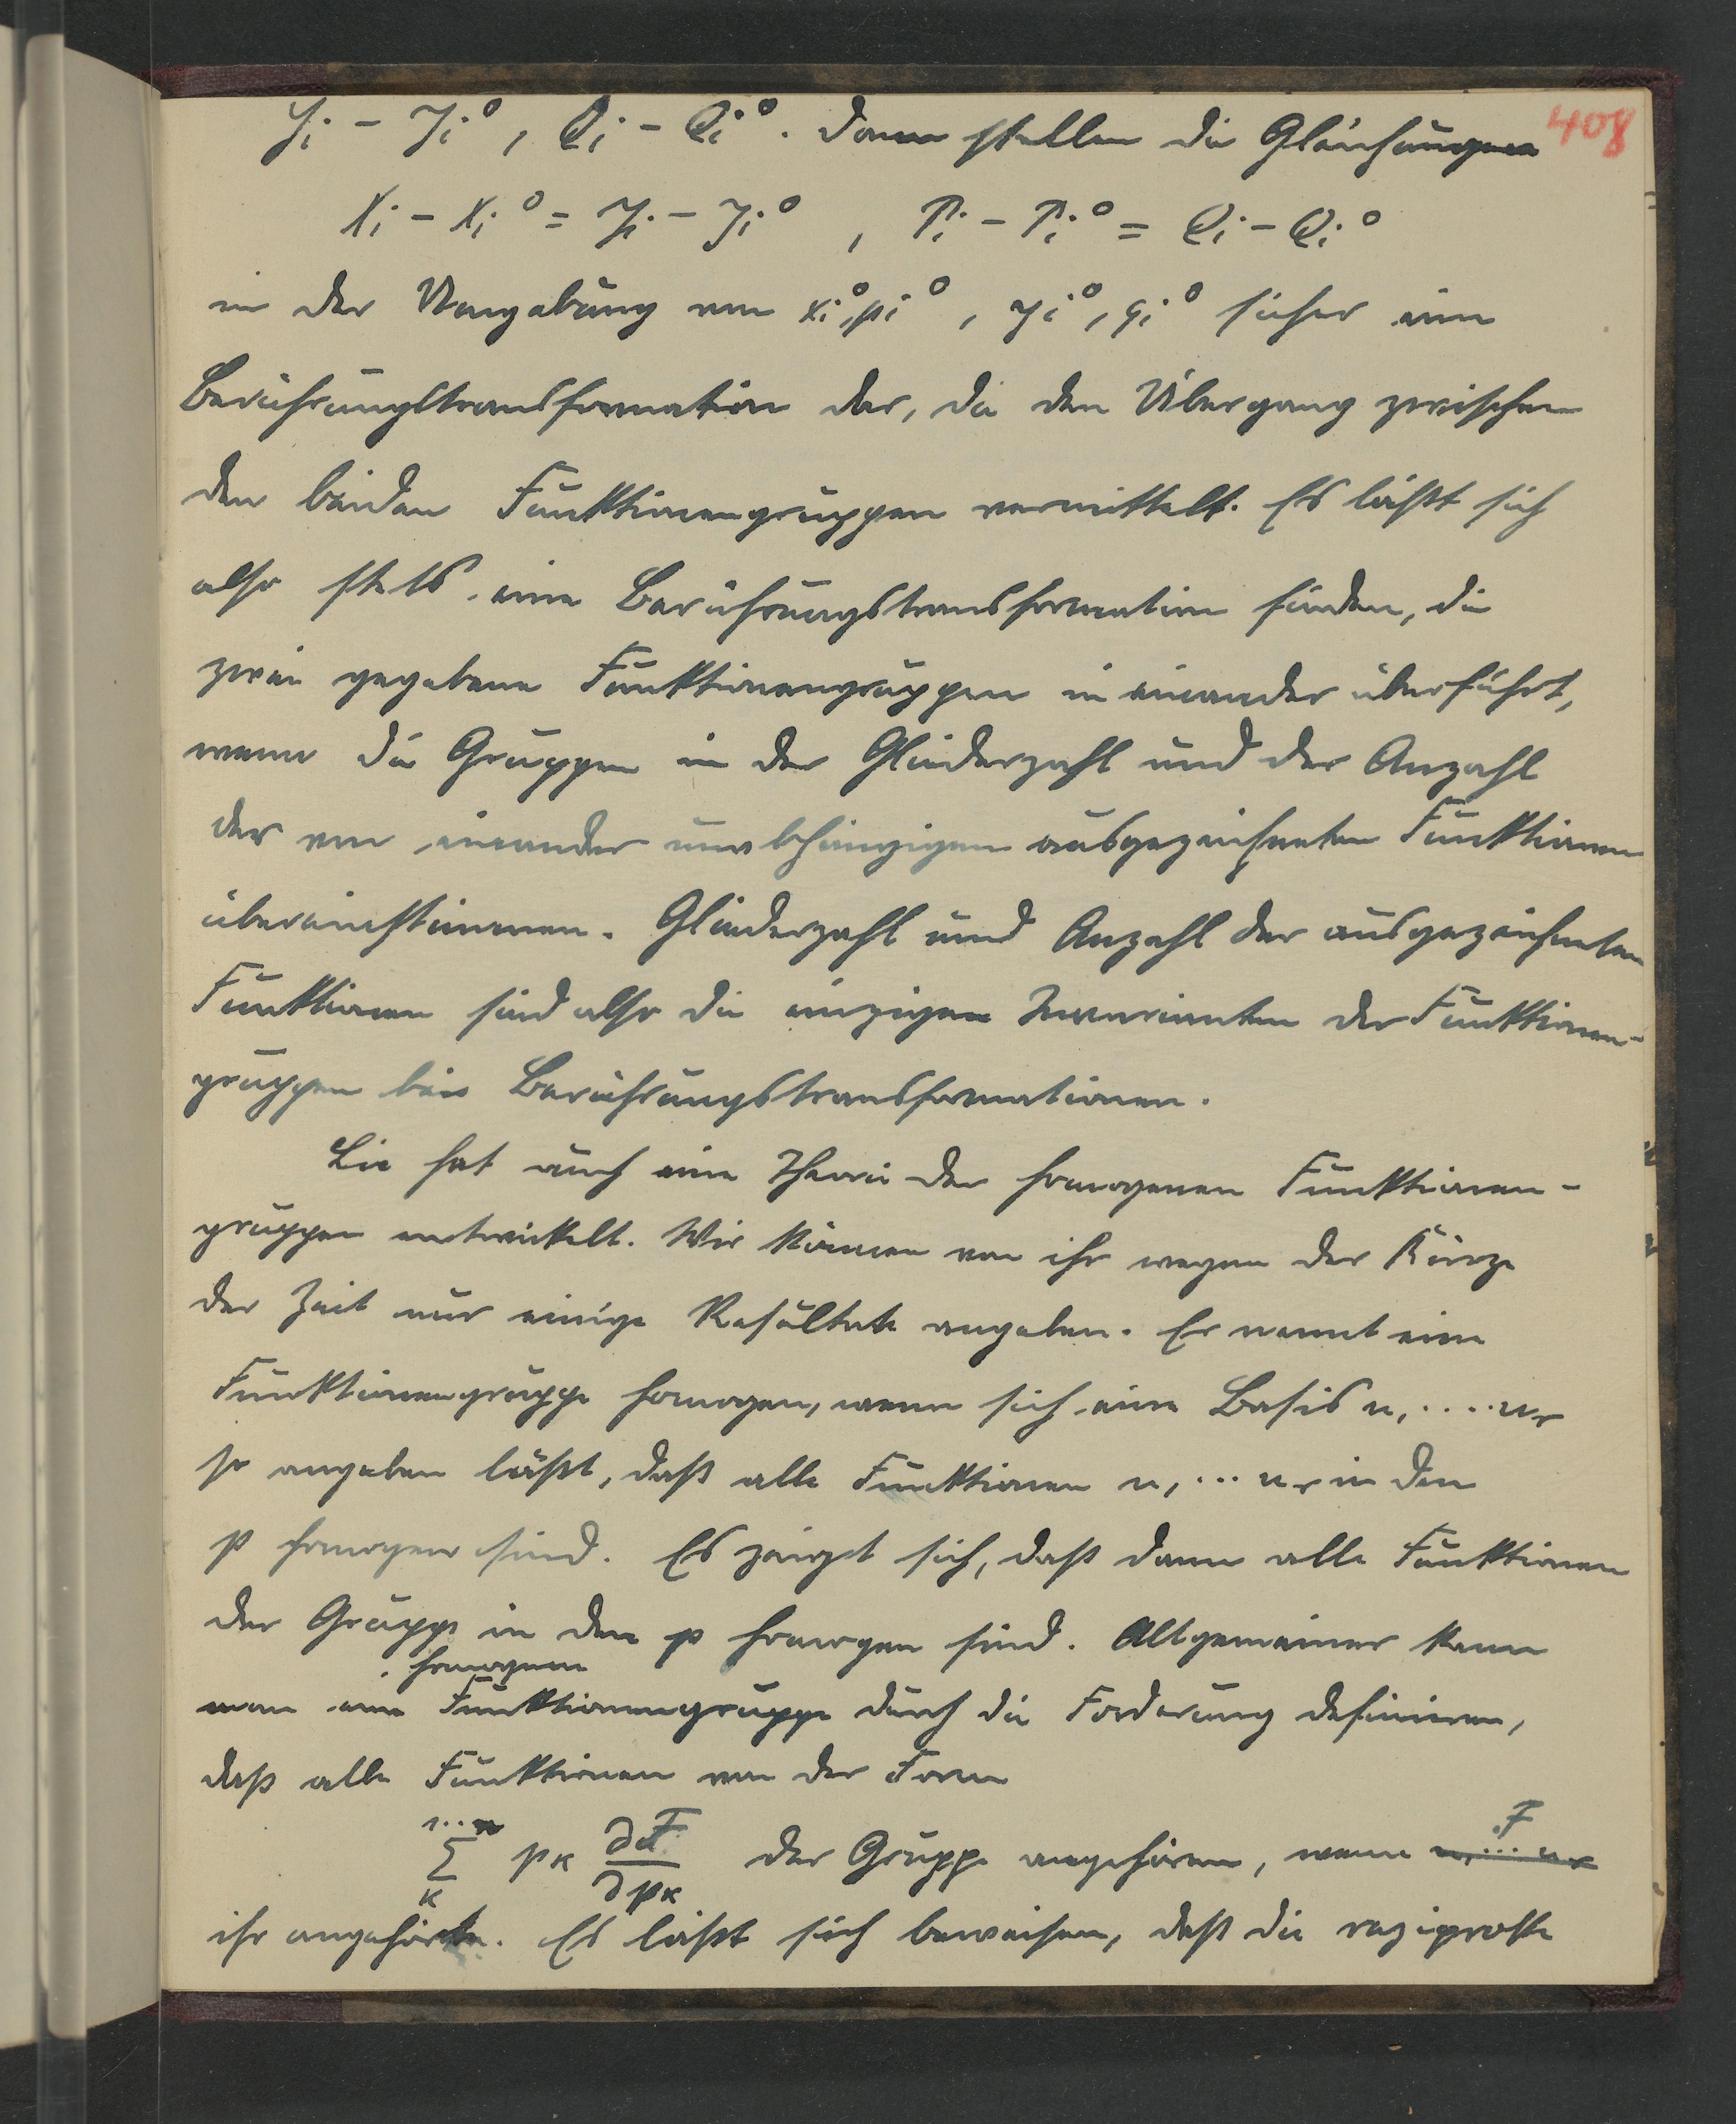 408
Y_i - Y_i°, Q_i - Q_i°. Dann stellen die Gleichungen
X_i - X_i° = Y_i - Y_i°, P_i - P_i° = Q_i - Q_i°
in der Umgebung von x_i°, p_i°, y_i°, q_i° sicher eine
Berührungstransformation dar, die den Übergang zwischen
den beiden Funktionengruppen vermittelt. Es läßt sich
also stets eine Berührungstransformation finden, die
zwei gegebene Funktionengruppen in einander überführt,
wenn die Gruppen in der Gliederzahl und der Anzahl
der von einander unabhängigen ausgezeichneten Funktionen
übereinstimmen. Gliederzahl und Anzahl der ausgezeichneten
Funktionen sind also die einzigen Invarianten der Funktionen-
gruppen bei Berührungstransformationen.
Lie hat auch eine Theorie der homogenen Funktionen-
gruppen entwickelt. Wir können von ihr wegen der Kürze
der Zeit nur einige Resultate angeben. Er nennt eine
Funktionengruppe homogen, wenn sich eine Basis u_1....u_r
so angeben läßt, daß alle Funktionen u_1...u_r in den
p homogen sind. Es zeigt sich, daß dann alle Funktionen
der Gruppe in den p homogen sind. Allgemeiner kann
homogene
man eine Funktionengruppe durch die Forderung definieren,
daß alle Funktionen von der Form
1...n Σ_κ p_κ ∂F/∂p_κ der Gruppe angehören, wenn u_1...u_r F
ihr angehört. Es läßt sich beweisen, daß die reziproke